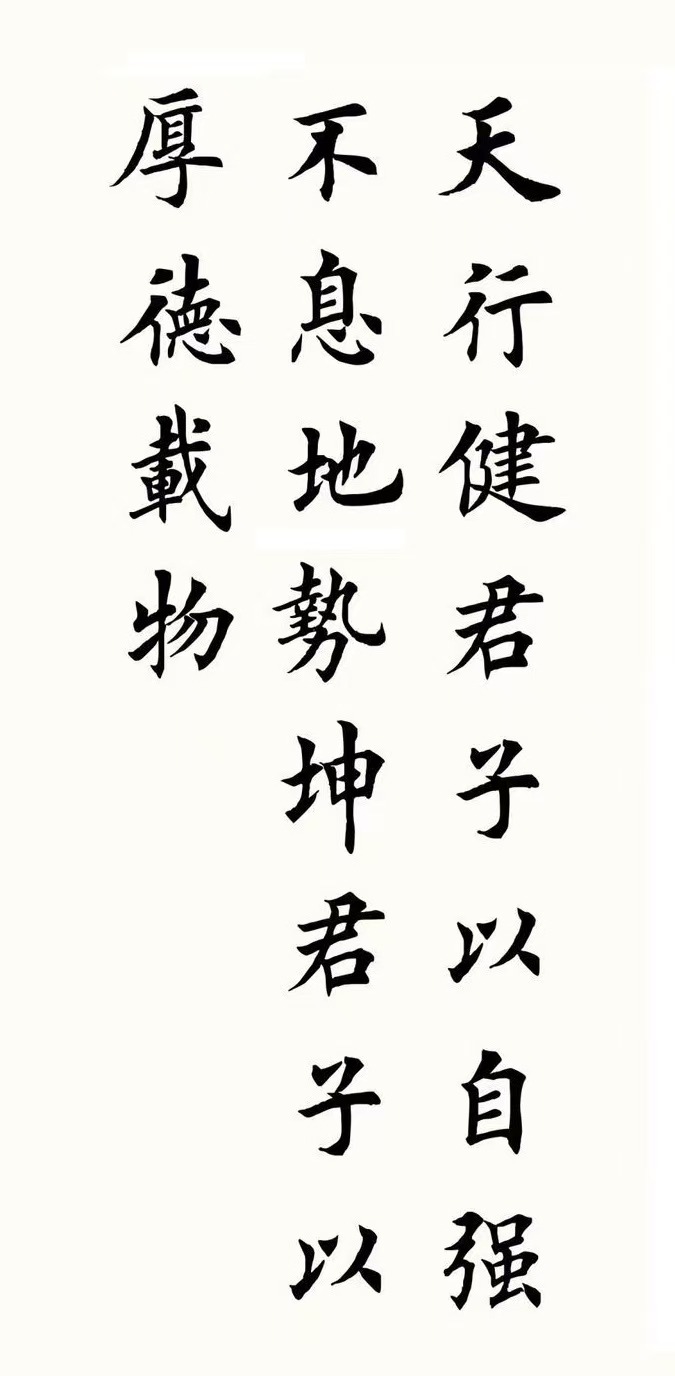 天行健君子以自强
不息地勢坤君子以
厚德載物